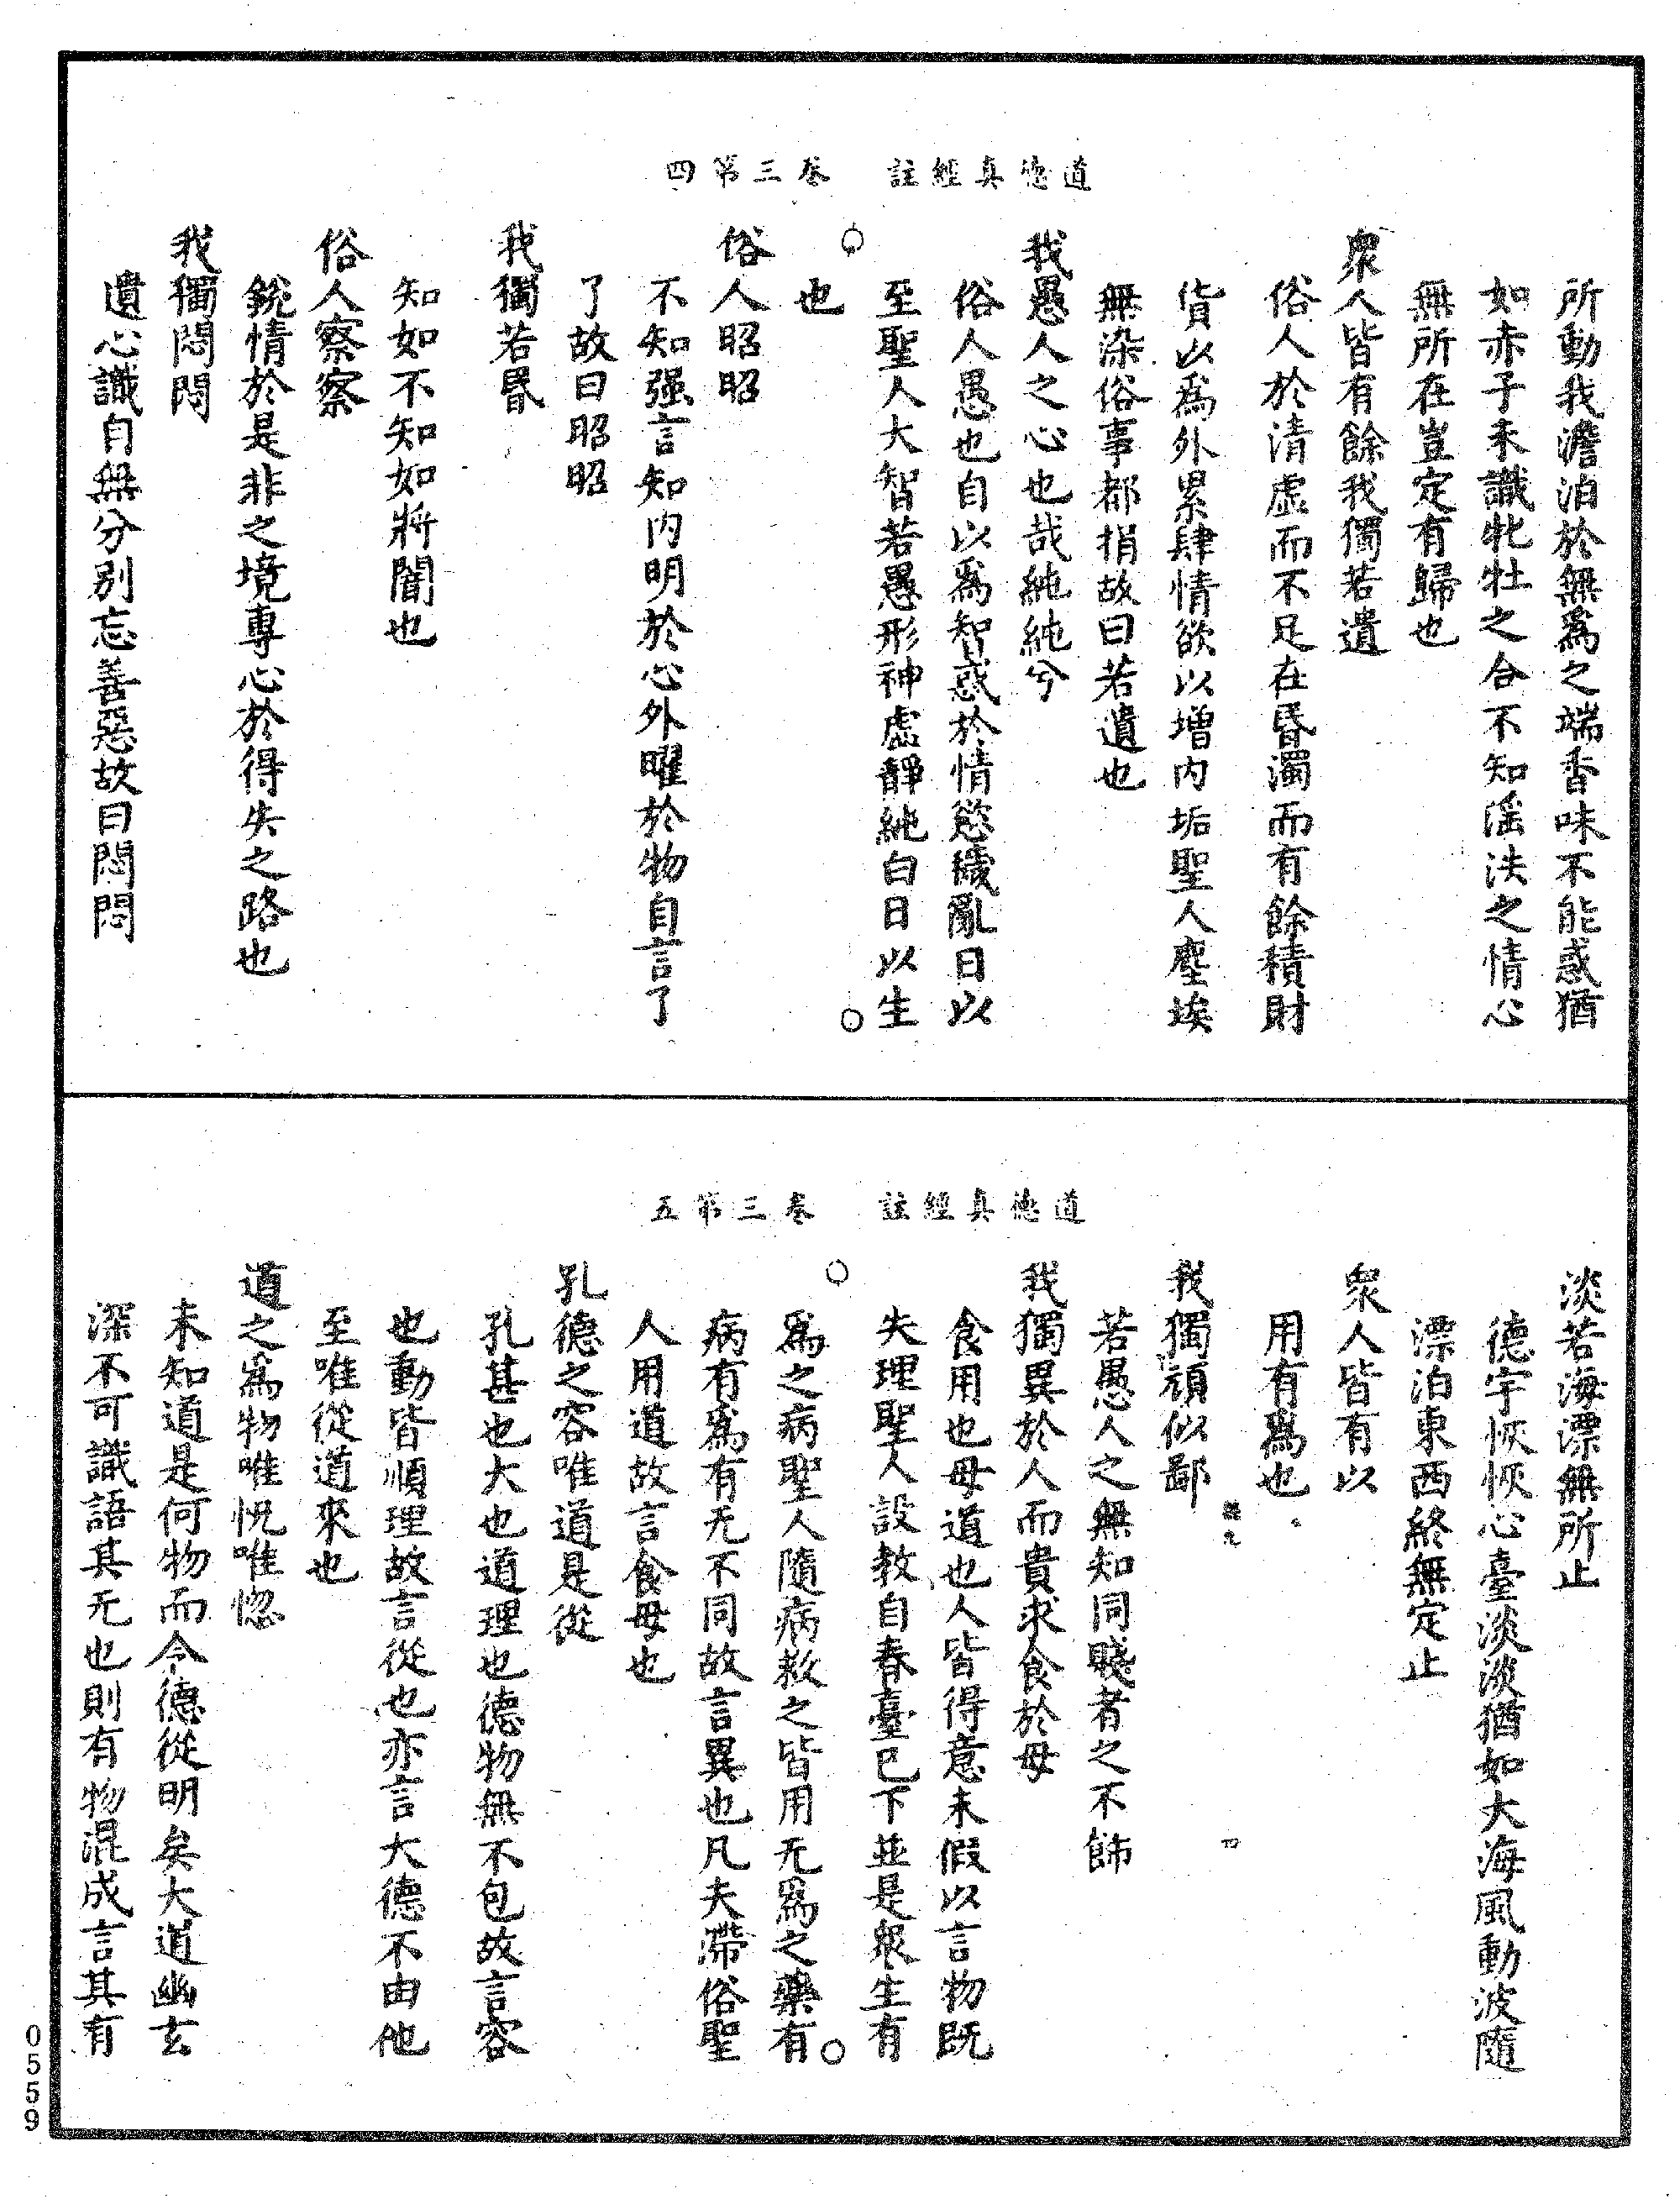 道德真經註　卷三第四
所動我澹泊於無爲之端香味不能惑猶
如赤子未識牝牡之合不知淫泆之情心
無所在豈定有歸也
衆人皆有餘我獨若遺
俗人於清虛而不足在昏濁而有餘積財
貨以爲外累肆情欲以增内垢聖人塵埃
無染俗事都捐故曰若遺也
我愚人之心也哉純純兮
俗人愚也自以爲智惑於情慾穢亂日以
至聖人大智若愚形神虛靜純白日以生
也
俗人昭昭
不知强言知内明於心外曜於物自言了
了故曰昭昭
我獨若昬
知如不知知如將闇也
俗人察察
銳情於是非之境專心於得失之路也
我獨悶悶
遺心識自無分别忘善惡故曰悶悶
道德真經註　卷三第五
淡若海漂無所止
德宇恢恢心臺淡淡猶如大海風動波隨
漂泊東西終無定止
衆人皆有以
用有爲也
我獨頑似鄙
若愚人之無知同賤者之不飾
我獨異於人而貴求食於母
食用也母道也人皆得意未假以言物既
失理聖人設教自春臺已下並是衆生有
爲之病聖人隨病救之皆用无爲之藥有
病有爲有无不同故言異也凡夫滯俗聖
人用道故言食母也
孔德之容唯道是從
孔甚也大也道理也德物無不包故言容
也動皆順理故言從也亦言大德不由他
至唯從道來也
道之爲物唯怳唯惚
未知道是何物而今德從明矣大道幽玄
深不可識語其无也則有物混成言其有
0559